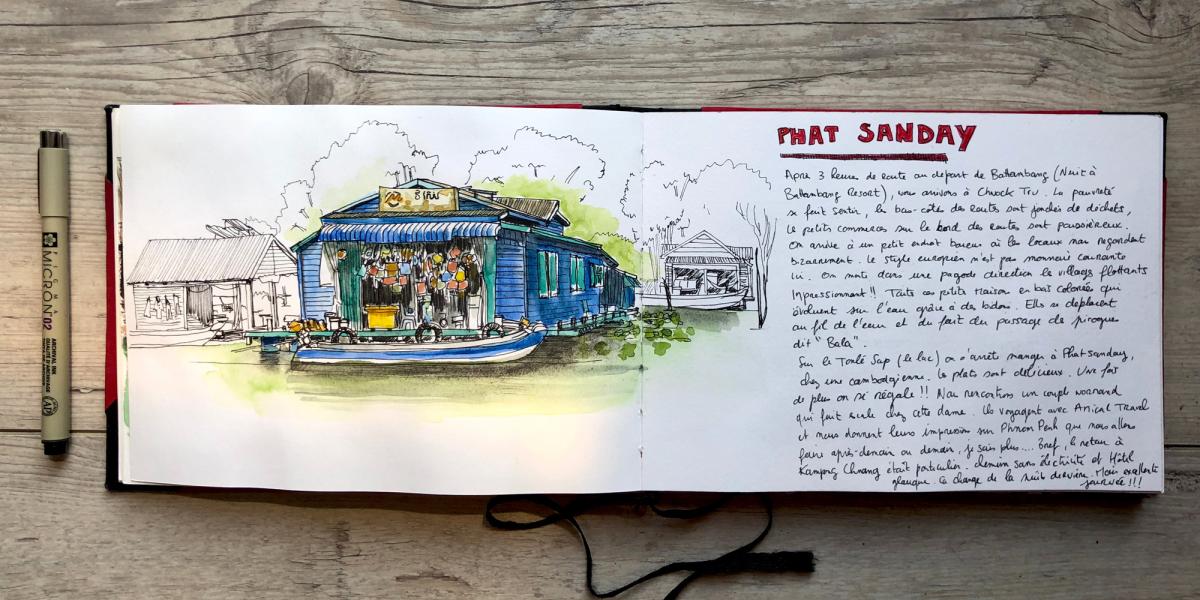 PHAT SANDAY
Après 3 heures de route au départ de Battambang (Nuit à
Battambang Resort), nous arrivons à Chnock Tru. La pauvreté
se fait sentir, les bas-côtés des routes sont jonchés de déchets,
Le petits commerces sur le bord des routes sont poussiéreux.
On arrive à un petit endroit bateux où les locaux nous regardent
bizarrement. Le style européen n'est pas monnaie courante
ici. On monte dans une pagode direction le villages flottants
Impressionnant!! Toutes ces petits Maison en bois colorées qui
évoluent sur l'eau grâce à des bidons. Elles se déplacent
au fil de l'eau et du fait du passage de pirogue
dit "Bala".
Sur le Tonlé Sap (le lac) on s'arrête manger à Phat sanday,
chez une cambodgienne. Les plats sont délicieux. Une fois
de plus on se régale!! Nous rencontrons un couple normand
qui fait escale chez cette dame. Ils voyagent avec Amical Travel
et nous donnent leurs impression sur Phnom Penh que nous allons
faire après-demain ou demain, je sais plus.... Bref, le retour à
Kampong Chnang était particulier. Chemin sans électricité et Hôtel
glauque. Ca change de la nuit dernière. Mais excellente
journée!!!
PIGMA
MICRON 02
ARCHIVAL INK
QUALITÉ D'ARCHIVAGE